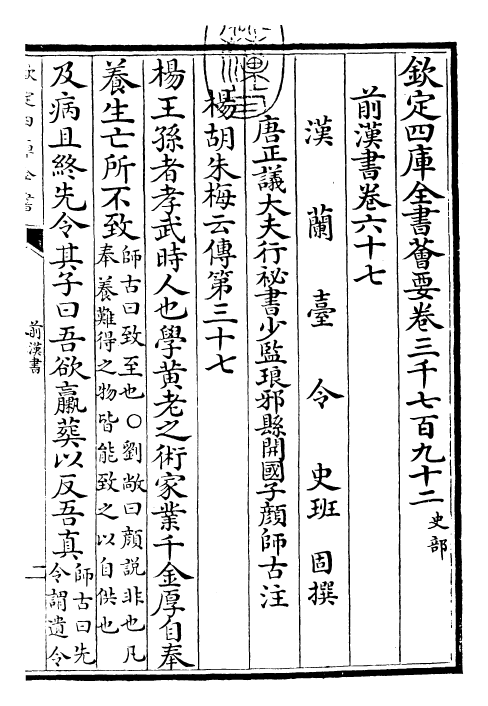 欽定四庫全書薈要卷三千七百九十二 史部
前漢書卷六十七
漢蘭臺令史班固撰
唐正議大夫行祕書少監琅邪縣開國子顏師古注
楊胡朱梅云傳第三十七
楊王孫者孝武時人也學黃老之術家業千金厚自奉
養生亡所不致師古曰致至也○劉敞曰顏說非也凡
奉養難得之物皆能致之以自供也
及病且終先令其子曰吾欲臝葬以反吾真師古曰先
令謂遺令
欽定四庫全書
前漢書